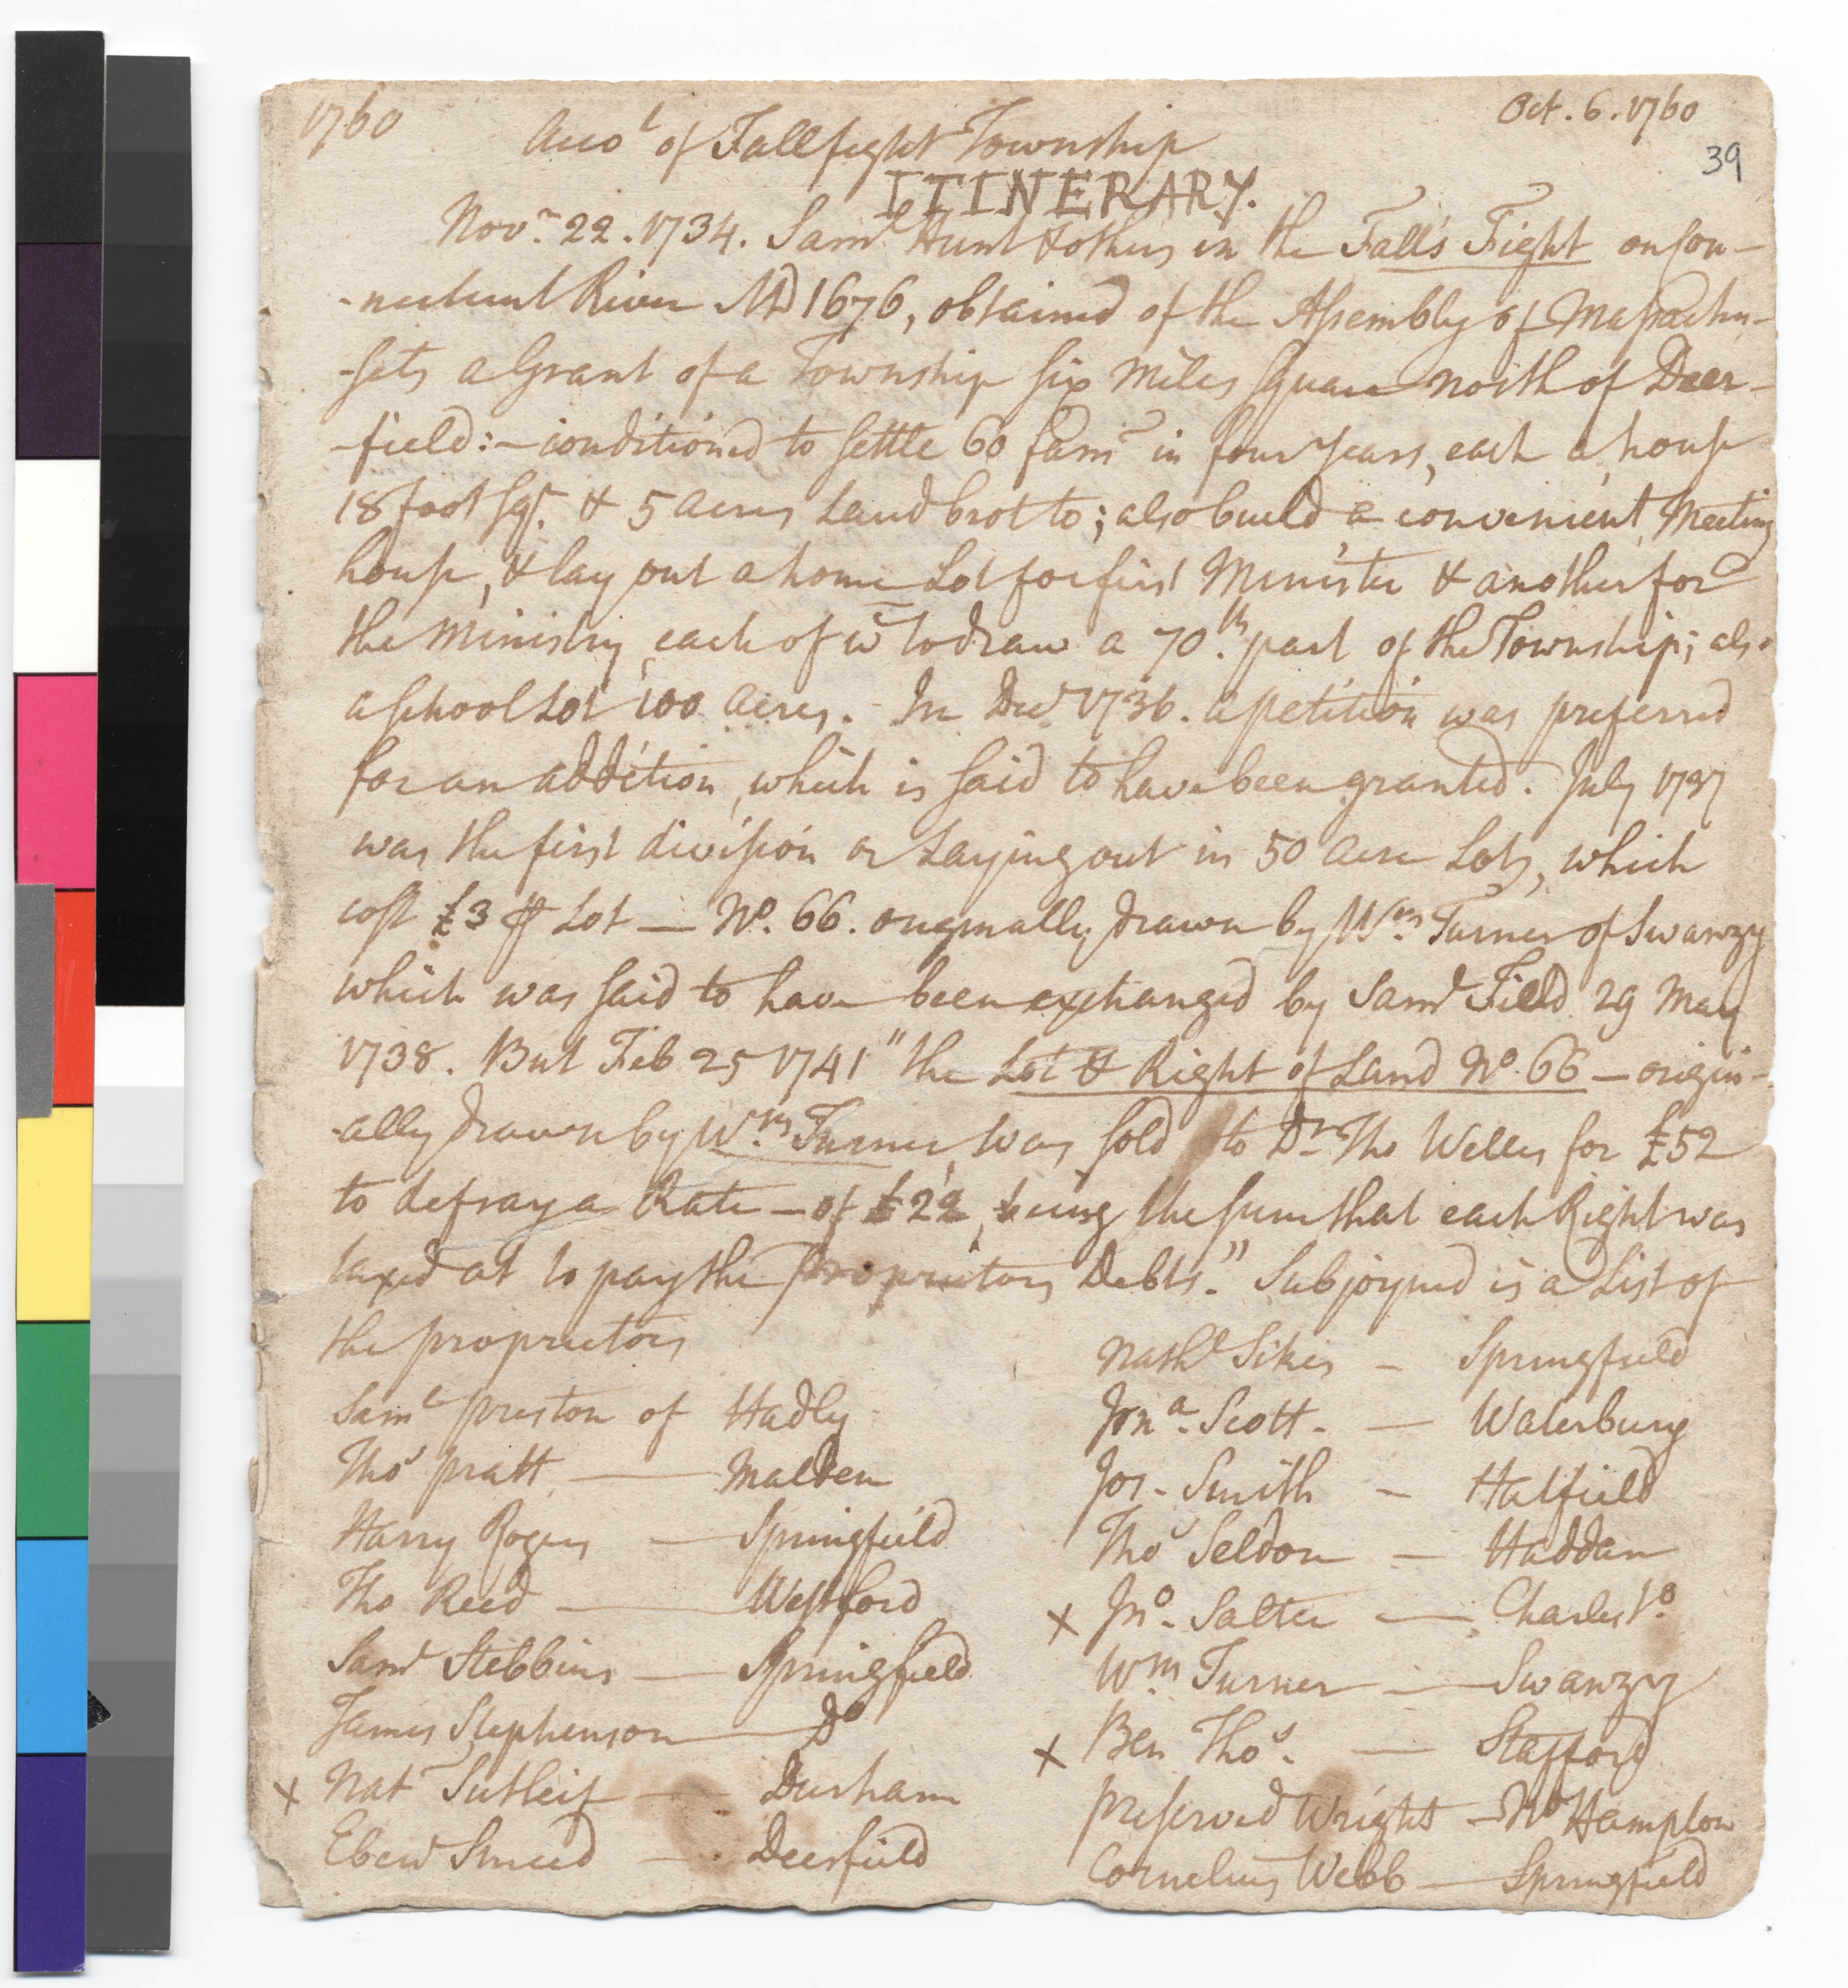 1760
Oct. 6. 1760
39
Acco^t of Fallfight Township
ITINERARY.
Nov^r. 22. 1734. Sam^l Hunt & others in the Falls Fight on Con-
-necticut River AD 1676, obtained of the Assembly of Massachu-
-sets a Grant of a Township six Miles square north of Deer-
-field:- conditioned to settle 60 fam^s in four years, each a house
18 foot sq^r. & 5 acres Land brot to; also build a convenient Meeting
house, & lay out a home Lot for first Minister & another for
the Ministry, each of w^c to draw a 70^th. part of the Township; also
a school Lot 100 acres. - In Dec^r 1736. a petition was preferred
for an addition, which is said to have been granted. July 1737
was the first division or Laying out in 50 acre Lots, which
cost £3 ⅌ Lot — N^o. 66. originally drawn by W^m. Turner of Swanzy
which was said to have been exchanged by Sam^l Field 29 May
1738. But Feb 25 1741 "the Lot & Right of Land N^o. 66 — origin-
-ally drawn by W^m. Turner, was sold to D^r Tho Welles for £52
to defray a Rate — of £22, being the sum that each Right was
taxed at to pay the proprietors Debts." Subjoyned is a List of
the proprietors
Sam^l preston of Hadly
Tho^s pratt — Malden
Harry Rogers — Springfield
Tho Reed — Westford
Sam^l Stebbins — Springfield
James Stephenson — D^o
x Nat Sutleif — Durham
Eben^r Smeed — Deerfield
Nath^l Sikes — Springfield
Jon^a. Scott. — Waterbury
Jos. Smith — Hatfield
Tho^s Seldon — Haddam
x Jn^o. Salter — Charlest^o.
W^m. Turner — Swanzy
x Ben Tho^s. — Stafford
preserved Wright — N^o Hampton
Cornelius Webb — Springfield